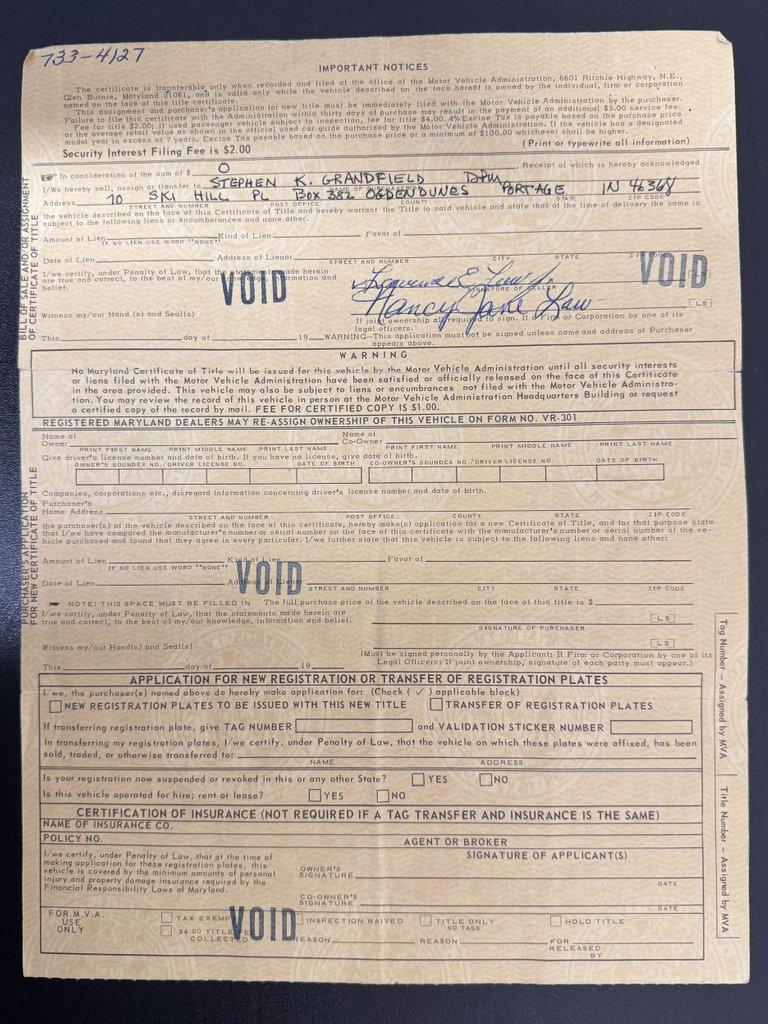 733-4127
IMPORTANT NOTICES
The certificate is transferable only when recorded and filed at the office of the Motor Vehicle Administration, 6601 Ritchie Highway, N.E.,
Glen Burnie, Maryland 21061, and is valid only while the vehicle described on the face hereof is owned by the individual, firm or corporation
named on the face of this title certificate.
This assignment and purchaser's application for new title must be immediately filed with the Motor Vehicle Administration by the purchaser.
Failure to file this certificate with the Administration within thirty days of purchase may result in the payment of an additional $5.00 service fee.
Fee for title $2.00; if used passenger vehicle subject to inspection, fee for title $4.00. 4% Excise Tax is payable based on the purchase price
or the average retail value as shown in the official used car guide authorized by the Motor Vehicle Administration. If the vehicle has a designated
model year in excess of 7 years, Excise Tax payable based on the purchase price or a minimum of $100.00 whichever shall be higher.
Security Interest Filing Fee is $2.00
(Print or typewrite all information)
BILL OF SALE AND/OR ASSIGNMENT
OF CERTIFICATE OF TITLE
In consideration of the sum of $ 0 , Receipt of which is hereby acknowledged
I/We hereby sell, assign or transfer to STEPHEN K. GRANDFIELD DPM
NAME OF PURCHASER
Address 70 SKI HILL PL BOX 382 OGDEN DUNES PORTAGE IN 46368
STREET AND NUMBER POST OFFICE COUNTY STATE ZIP CODE
the vehicle described on the face of this Certificate of Title and hereby warrant the Title to said vehicle and state that at the time of delivery the same is
subject to the following liens or encumbrances and none other.
Amount of Lien Kind of Lien Favor of
IF NO LIEN USE WORD "NONE"
Date of Lien Address of Lienor
STREET AND NUMBER CITY STATE ZIP CODE
I/we certify, under Penalty of Law, that the statements made herein
are true and correct, to the best of my/our knowledge, information and
belief.
VOID
Lawrence E. Law Jr.
VOID
SIGNATURE OF SELLER
Nancy Jane Law
LS
Witness my/our Hand(s) and Seal(s)
If joint ownership all required to sign. If Firm or Corporation by one of its
legal officers.
This day of 19 WARNING—This application must not be signed unless name and address of Purchaser
appears above.
WARNING
No Maryland Certificate of Title will be issued for this vehicle by the Motor Vehicle Administration until all security interests
or liens filed with the Motor Vehicle Administration have been satisfied or officially released on the face of this Certificate
in the area provided. This vehicle may also be subject to liens or encumbrances not filed with the Motor Vehicle Administra-
tion. You may review the record of this vehicle in person at the Motor Vehicle Administration Headquarters Building or request
a certified copy of the record by mail. FEE FOR CERTIFIED COPY IS $1.00.
REGISTERED MARYLAND DEALERS MAY RE-ASSIGN OWNERSHIP OF THIS VEHICLE ON FORM NO. VR-301
PURCHASER'S APPLICATION
FOR NEW CERTIFICATE OF TITLE
Name of Owner Name of Co-Owner
PRINT FIRST NAME PRINT MIDDLE NAME PRINT LAST NAME PRINT FIRST NAME PRINT MIDDLE NAME PRINT LAST NAME
Give driver's license number and date of birth. If you have no license, give date of birth.
OWNER'S SOUNDEX NO./DRIVER LICENSE NO. DATE OF BIRTH CO-OWNER'S SOUNDEX NO./DRIVER LICENSE NO. DATE OF BIRTH
Companies, corporations etc., disregard information concerning driver's license number and date of birth.
Purchaser's
Home Address
STREET AND NUMBER POST OFFICE COUNTY STATE ZIP CODE
the purchaser(s) of the vehicle described on the face of this certificate, hereby make(s) application for a new Certificate of Title, and for that purpose state
that I/we have compared the manufacturer's number or serial number on the face of this certificate with the manufacturer's number or serial number of the ve-
hicle purchased and found that they agree in every particular. I/we further state that this vehicle is subject to the following liens and none other:
Amount of Lien Kind of Lien Favor of
IF NO LIEN USE WORD "NONE"
VOID
Date of Lien Address of Lienor
STREET AND NUMBER CITY STATE ZIP CODE
NOTE: THIS SPACE MUST BE FILLED IN The full purchase price of the vehicle described on the face of this title is $
I/we certify, under Penalty of Law, that the statements made herein are
true and correct, to the best of my/our knowledge, information and belief.
LS
SIGNATURE OF PURCHASER
LS
Witness my/our Hand(s) and Seal(s)
(Must be signed personally by the Applicant: If Firm or Corporation by one of its
Legal Officers; If joint ownership, signature of each party must appear.)
This day of 19
APPLICATION FOR NEW REGISTRATION OR TRANSFER OF REGISTRATION PLATES
I/we, the purchaser(s) named above do hereby make application for: (Check ( ✓ ) applicable block)
NEW REGISTRATION PLATES TO BE ISSUED WITH THIS NEW TITLE TRANSFER OF REGISTRATION PLATES
If transferring registration plate, give TAG NUMBER and VALIDATION STICKER NUMBER
In transferring my registration plates, I/we certify, under Penalty of Law, that the vehicle on which these plates were affixed, has been
sold, traded, or otherwise transferred to:
NAME ADDRESS
Is your registration now suspended or revoked in this or any other State? YES NO
Is this vehicle operated for hire; rent or lease? YES NO
CERTIFICATION OF INSURANCE (NOT REQUIRED IF A TAG TRANSFER AND INSURANCE IS THE SAME)
NAME OF INSURANCE CO.
POLICY NO. AGENT OR BROKER
I/we certify, under Penalty of Law, that at the time of
making application for these registration plates, this
vehicle is covered by the minimum amounts of personal
injury and property damage insurance required by the
Financial Responsibility Laws of Maryland.
SIGNATURE OF APPLICANT(S)
OWNER'S
SIGNATURE
DATE
CO-OWNER'S
SIGNATURE
DATE
FOR M.V.A.
USE
ONLY
TAX EXEMPT
$4.00 TITLE FEE
COLLECTED
VOID
INSPECTION WAIVED
REASON
TITLE ONLY
NO TAGS
REASON
HOLD TITLE
FOR
RELEASED
BY
Tag Number — Assigned by MVA
Title Number — Assigned by MVA